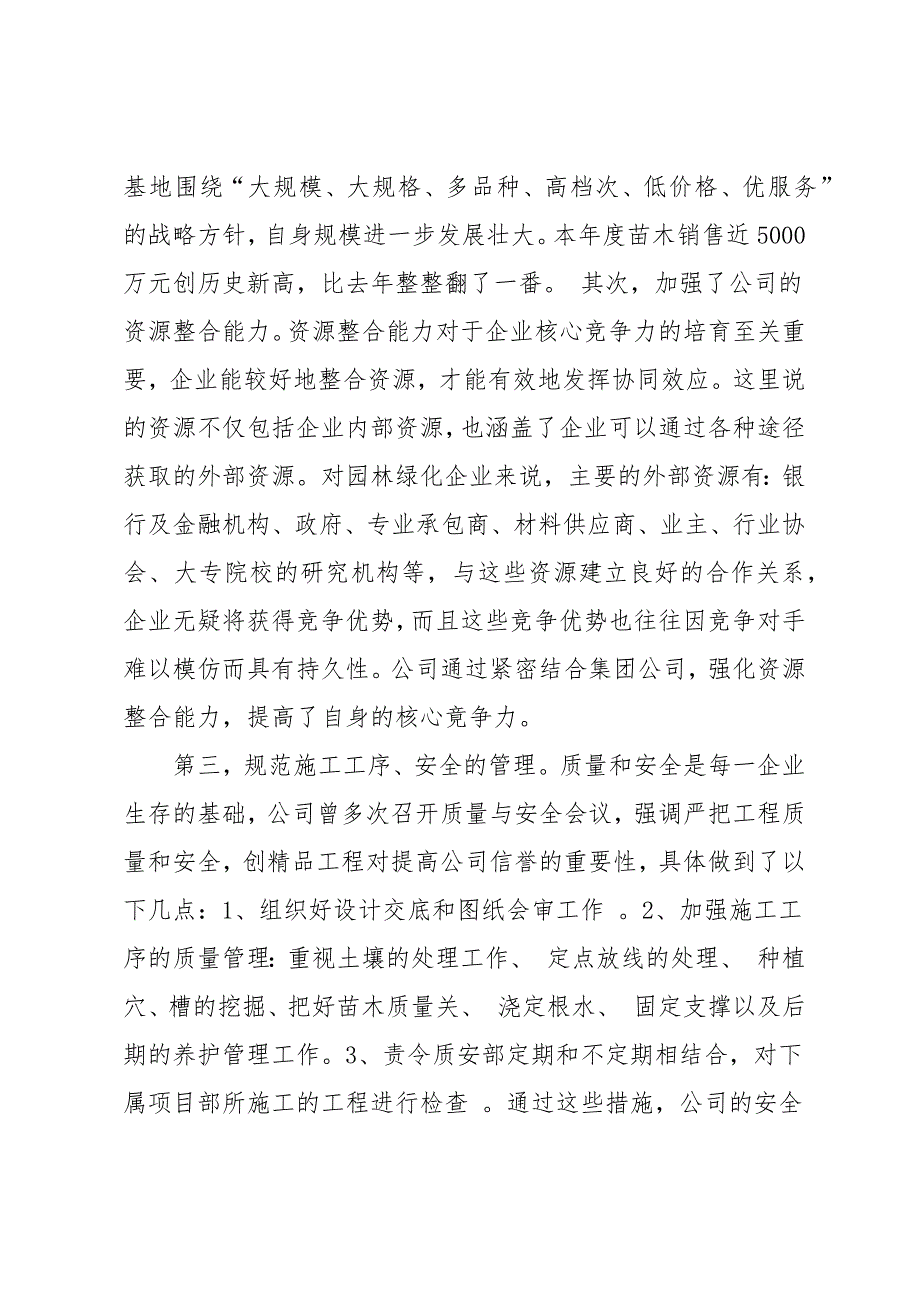 基地围绕“大规模、大规格、多品种、高档次、低价格、优服务”
的战略方针，自身规模进一步发展壮大。本年度苗木销售近 5000
万元创历史新高，比去年整整翻了一番。 其次，加强了公司的
资源整合能力。资源整合能力对于企业核心竞争力的培育至关重
要，企业能较好地整合资源，才能有效地发挥协同效应。这里说
的资源不仅包括企业内部资源，也涵盖了企业可以通过各种途径
获取的外部资源。对园林绿化企业来说，主要的外部资源有：银
行及金融机构、政府、专业承包商、材料供应商、业主、行业协
会、大专院校的研究机构等，与这些资源建立良好的合作关系，
企业无疑将获得竞争优势，而且这些竞争优势也往往因竞争对手
难以模仿而具有持久性。公司通过紧密结合集团公司，强化资源
整合能力，提高了自身的核心竟争力。
第三，规范施工工序、安全的管理。质量和安全是每一企业
生存的基础，公司曾多次召开质量与安全会议，强调严把工程质
量和安全，创精品工程对提高公司信誉的重要性，具体做到了以
下几点：1、组织好设计交底和图纸会审工作 。2、加强施工工
序的质量管理：重视土壤的处理工作、 定点放线的处理、 种植
穴、槽的挖掘、把好苗木质量关、 浇定根水、 固定支撑以及后
期的养护管理工作。3、责令质安部定期和不定期相结合，对下
属项目部所施工的工程进行检查 。通过这些措施，公司的安全